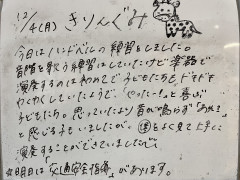 12/4(月) きりんぐみ
今日はハンドベルの練習をしました。
音階を歌う練習はしていたけど楽器で
演奏するのは初めてで子どもたちもドキドキ
わくわくしていたようで、「やったー!」と喜ぶ
子どもたち。思っていたより音が鳴らず「あれ?」
と感じる子もいましたが、をよく見て上手に
演奏することができていましたよ!
☆明日は「交通安全指導」があります。